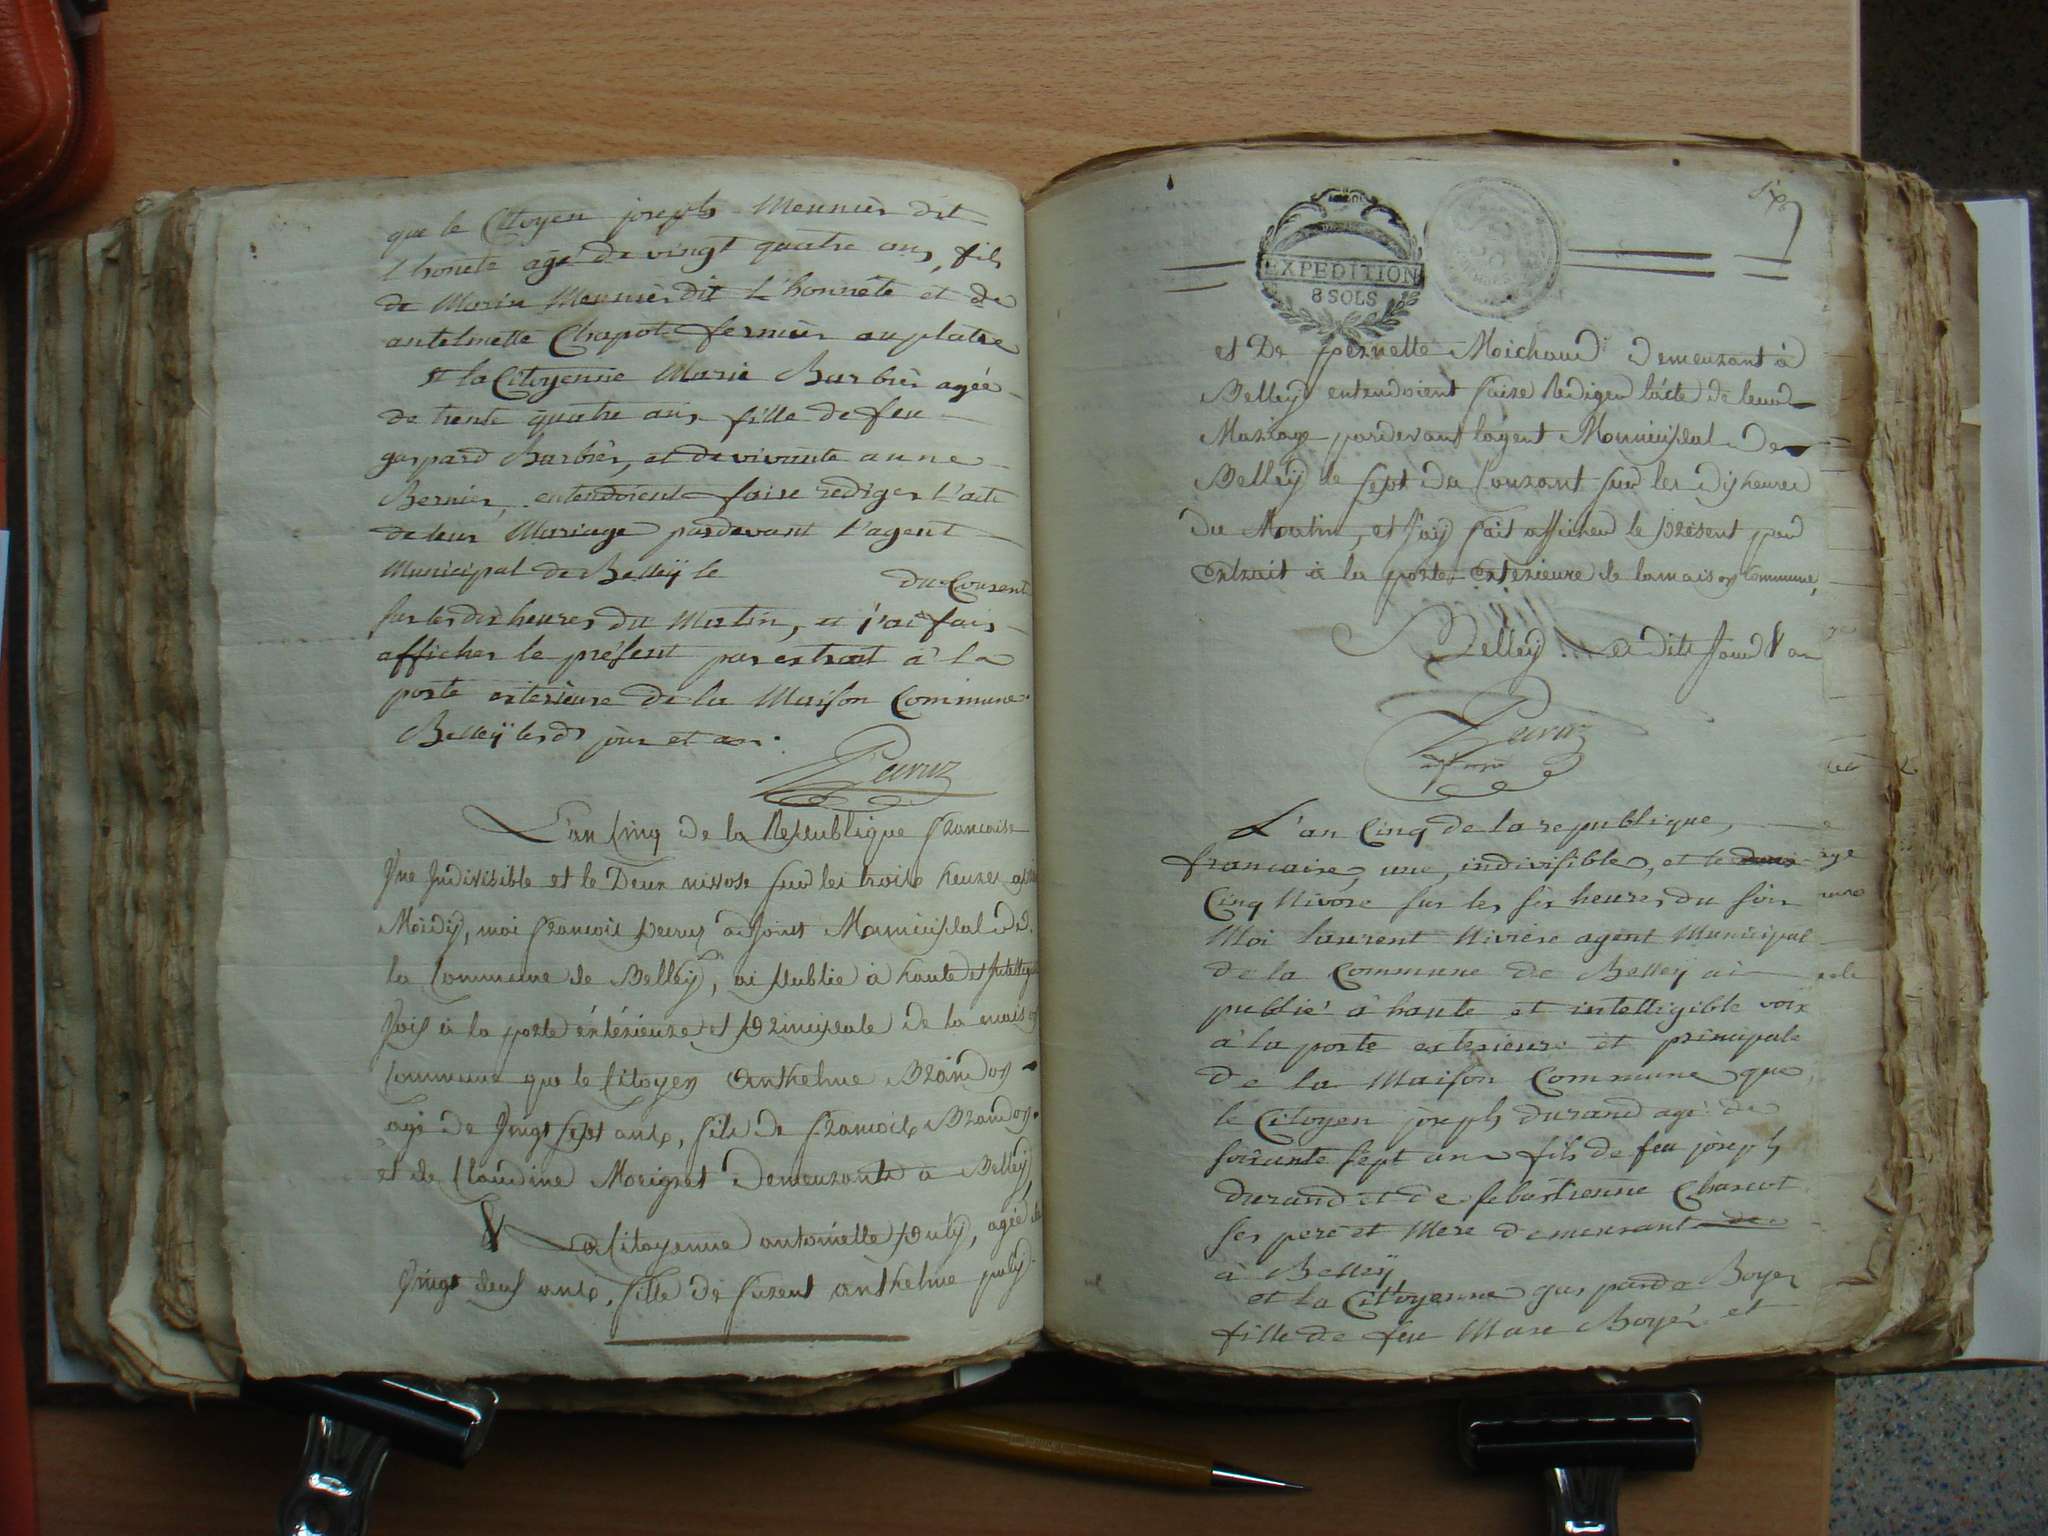 que le Citoyen joseph Meunier dit
l'honete agé de vingt quatre ans, fils
de Marin Meunier dit L'honnete et de
antelmette Chapot fermier au platre
et la Citoyenne Marie Barbier agée
de trente quatre ans fille de feu
gaspard Barbier, et de vivante anne
Bernier, entendoient faire rediger l'acte
de leur Mariage pardevant l'agent
Municipal de Belleÿ le du Courent
sur les dix heures du Matin, et j'ai fais
afficher le présent par extrait à la
porte exterieure de la Maison Commune
Belleÿ lesds jour et an.
Peruz
L'an Cinq de la Republique francaise
Une Indivisible et le Deux nivose sur les trois heures après
Meidy, moi francois peruz adjoint Municipal de
la Commune de Belleÿ, ai publié à haute et Intelligible
Voix à la porte extérieure et principale de la maison
Commune que le Citoyen Anthelme Brandon
agé de Vingt sept ans, fils de francois Brandon
et de Claudine Moignet demeurants à Belleÿ
& la Citoyenne antoinette puly, agée de
Vingt deux ans, fille de anthelme puly
EXPEDITION
8 SOLS
et De pernette Moichoud demeurant à
Belleÿ entendoient faire Rediger l'acte de leur
Mariage pardevant l'agent Municipal de
Belleÿ le sept du Courant sur les dix heures
du Matin, et j'aÿ fait afficher le présent par
Extrait à la porte Exterieure de la maison Commune,
Belleÿ Les dits Jour & an
Peruz
L'an Cinq de la republique
francaise, une, indivisible, et le
Cinq Nivose sur les six heures du soir
Moi laurent Niviere agent Municipal
de la Commune de Belleÿ ai
publié à haute et intelligible voix
à la porte exterieure et principale
de la Maison Commune que
le Citoyen joseph durand agé de
soixante sept ans fils de feu joseph
durand et de sebastienne Charcot
ses pere et Mere demeurant de
à Belleÿ
et la Citoyenne gasparde Boyer
fille de feu Marc Boyér et